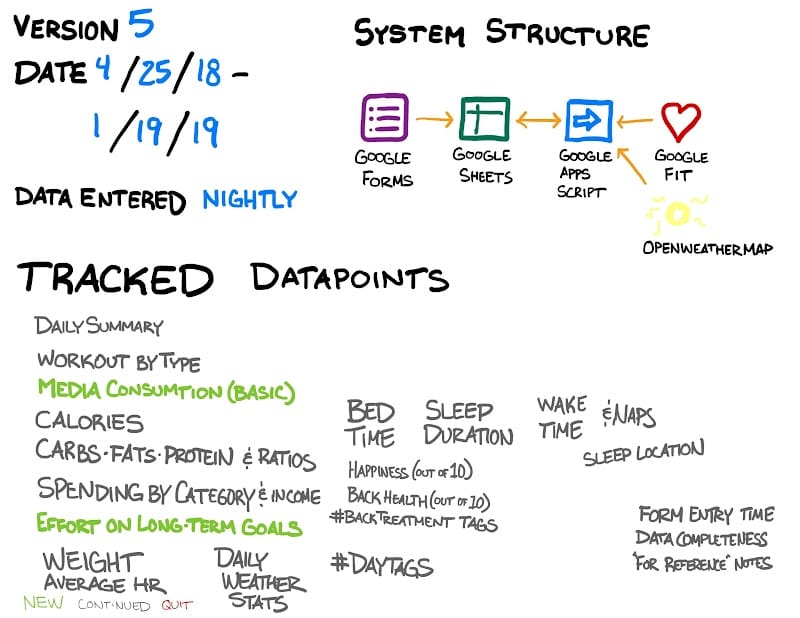 VERSION 5
DATE 4/25/18 -
1/19/19
DATA ENTERED NIGHTLY
SYSTEM STRUCTURE
GOOGLE
FORMS
GOOGLE
SHEETS
GOOGLE
APPS
SCRIPT
GOOGLE
FIT
OPENWEATHERMAP
TRACKED DATAPOINTS
DAILY SUMMARY
WORKOUT BY TYPE
MEDIA CONSUMTION (BASIC)
CALORIES
CARBS·FATS·PROTEIN & RATIOS
SPENDING BY CATEGORY & INCOME
EFFORT ON LONG-TERM GOALS
WEIGHT
AVERAGE HR
DAILY
WEATHER
STATS
BED
TIME
SLEEP
DURATION
WAKE
TIME
& NAPS
SLEEP LOCATION
HAPPINESS (OUT OF 10)
BACK HEALTH (OUT OF 10)
#BACKTREATMENT TAGS
#DAYTAGS
FORM ENTRY TIME
DATA COMPLETENESS
"FOR REFERENCE" NOTES
NEW CONTINUED QUIT